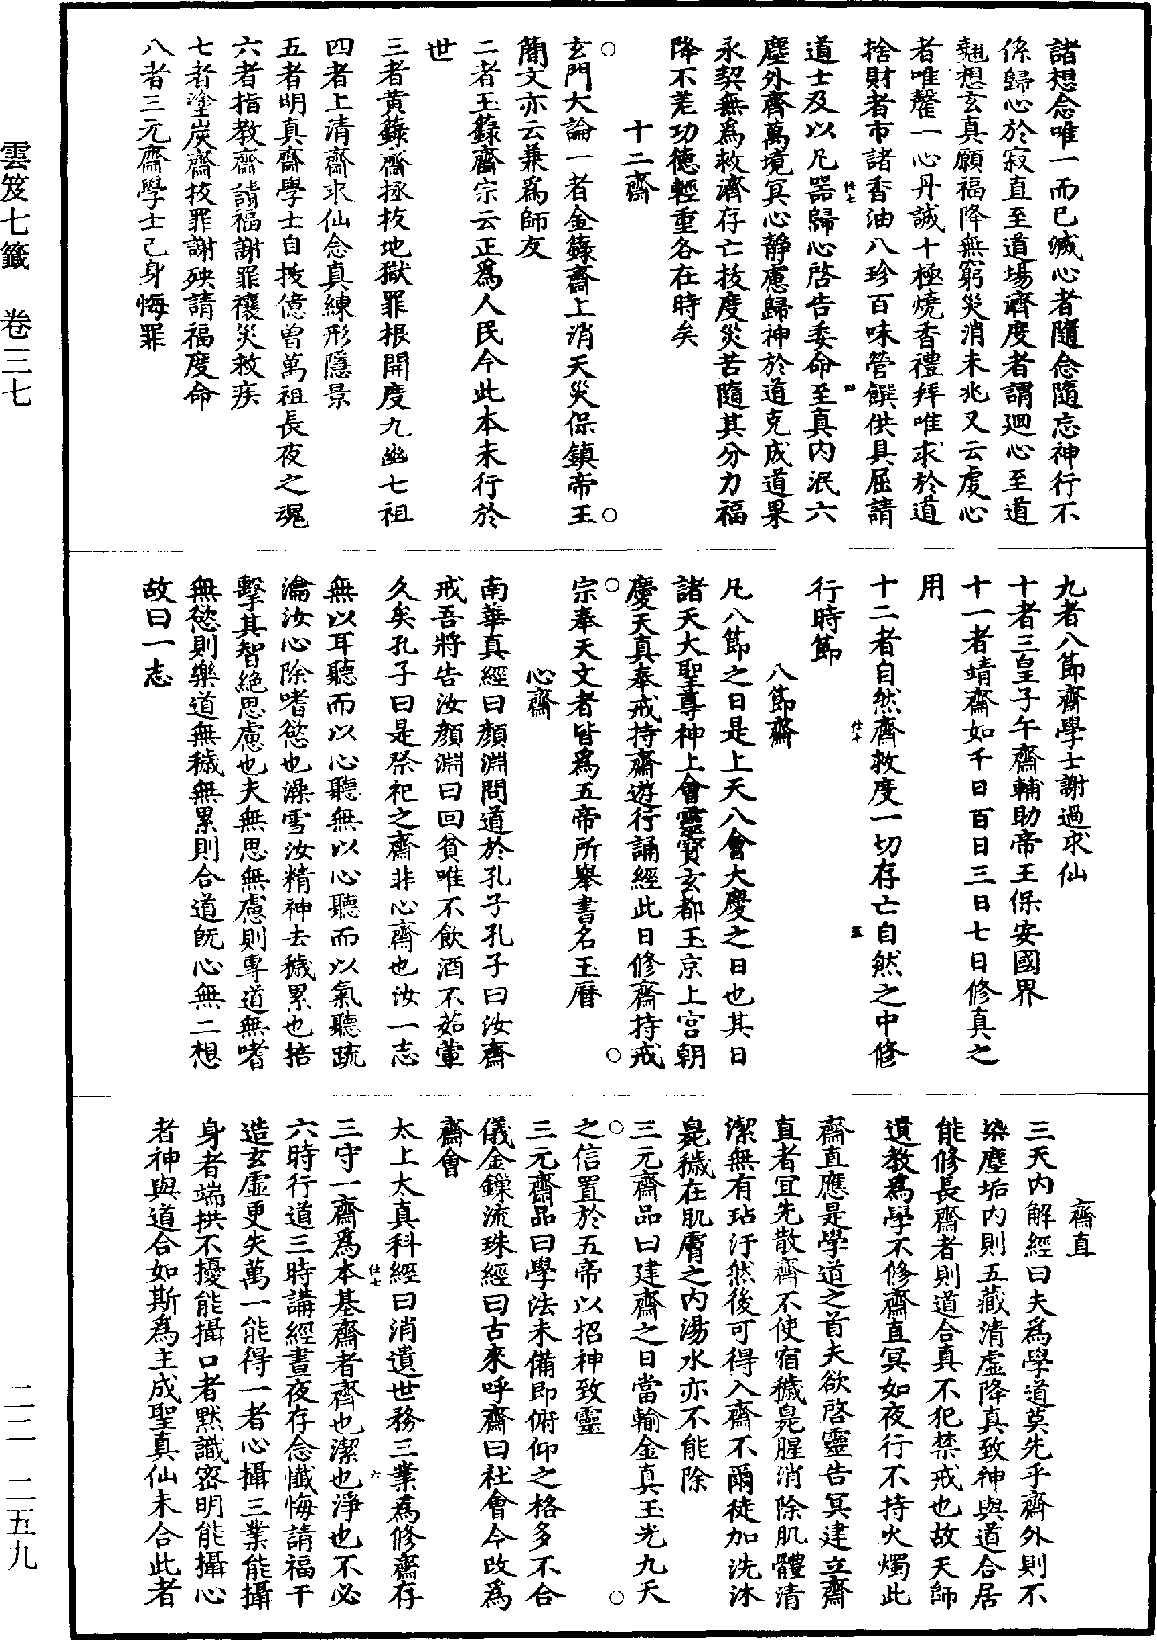 諸想念唯一而已滅心者隨念隨忘神行不
係歸心於寂直至道場齋度者謂迴心至道
翹想玄真願福降無窮災消未兆又云虔心
者唯罄一心丹誠十極燒香禮拜唯求於道
捨財者市諸香油八珍百味營饌供具屈請
道士及以凡器歸心啓告委命至真內泯六
塵外齊萬境冥心靜慮歸神於道克成道果
永契無為救濟存亡拔度災苦隨其分力福
降不差功德輕重各在時矣
十二齋
玄門大論一者金籙齋上消天災保鎮帝王
簡文亦云兼為師友
二者玉籙齋宗云正為人民今此本未行於
世
三者黃籙齋拯拔地獄罪根開度九幽七祖
四者上清齋求仙念真練形隱景
五者明真齋學士自拔億曾萬祖長夜之魂
六者指教齋請福謝罪禳災救疾
七者塗炭齋拔罪謝殃請福度命
八者三元齋學士己身悔罪
九者八節齋學士謝過求仙
十者三皇子午齋輔助帝王保安國界
十一者靖齋如千日百日三日七日修真之
用
十二者自然齋救度一切存亡自然之中修
行時節
八節齋
凡八節之日是上天八會大慶之日也其日
諸天大聖尊神上會靈寶玄都玉京上宮朝
慶天真奉戒持齋遊行誦經此日修齋持戒
宗奉天文者皆為五帝所舉書名玉曆
心齋
南華真經曰顏淵問道於孔子孔子曰汝齋
戒吾將告汝顏淵曰回貧唯不飲酒不茹葷
久矣孔子曰是祭祀之齋非心齋也汝一志
無以耳聽而以心聽無以心聽而以氣聽疏
瀹汝心除嗜慾也澡雪汝精神去穢累也掊
擊其智絕思慮也夫無思無慮則專道無嗜
無慾則樂道無穢無累則合道既心無二想
故曰一志
齋直
三天內解經曰夫為學道莫先乎齋外則不
染塵垢內則五藏清虛降真致神與道合居
能修長齋者則道合真不犯禁戒也故天師
遺教為學不修齋直冥如夜行不持火燭此
齋直應是學道之首夫欲啓靈告冥建立齋
直者宜先散齋不使宿穢臭腥消除肌體清
潔無有玷汙然後可得入齋不爾徒加洗沐
臭穢在肌膚之內湯水亦不能除
三元齋品曰建齋之日當輸金真玉光九天
之信置於五帝以招神致靈
三元齋品曰學法未備即俯仰之格多不合
儀金鏁流珠經曰古來呼齋曰社會今改為
齋會
太上太真科經曰消遺世務三業為修齋存
三守一齋為本基齋者齊也潔也淨也不必
六時行道三時講經晝夜存念懺悔請福干
造玄虛更失萬一能得一者心攝三業能攝
身者端拱不擾能攝口者默識密明能攝心
者神與道合如斯為主成聖真仙未合此者
雲笈七籤　卷三七
二二—二五九